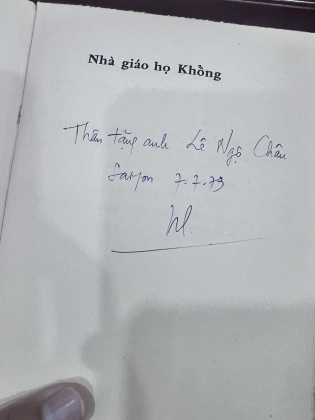 Nhà giáo họ Khổng
Thân tặng anh Lê Ngộ Châu
Saigon 7.7.73